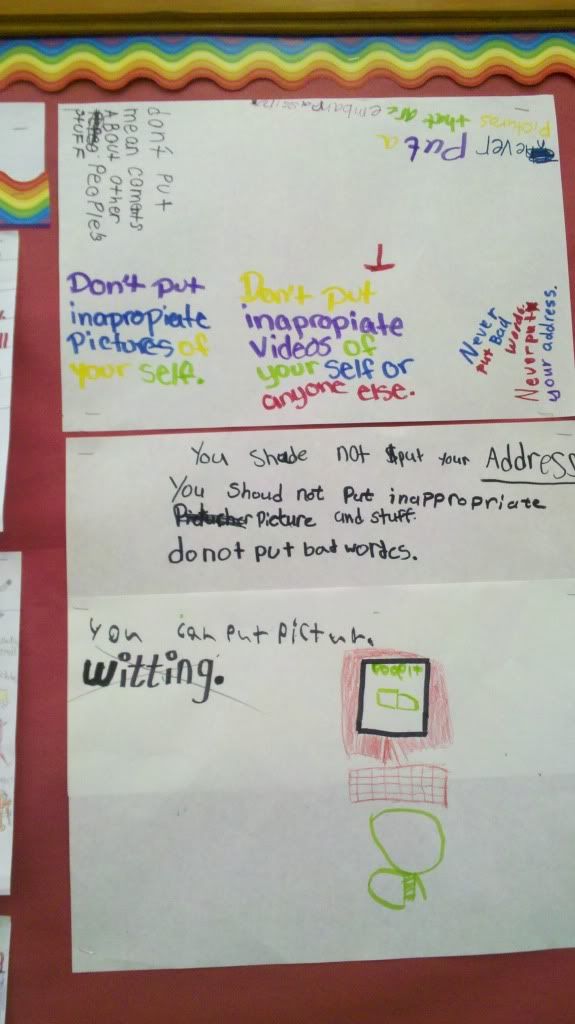 never Put a
pictures that are
dont put
mean coments
ABout other
PEoplEs
STUFF
Don't put
inapropiate
pictures of
your self.
Don't put
inapropiate
videos of
your self or
anyone else.
Never
put Bad
words.
Never put
your address.
You Shade not put your Address
You Shoud not Put inappropriate
Picture and stuff.
do not put bad wordes.
You can put pictur.
witting.